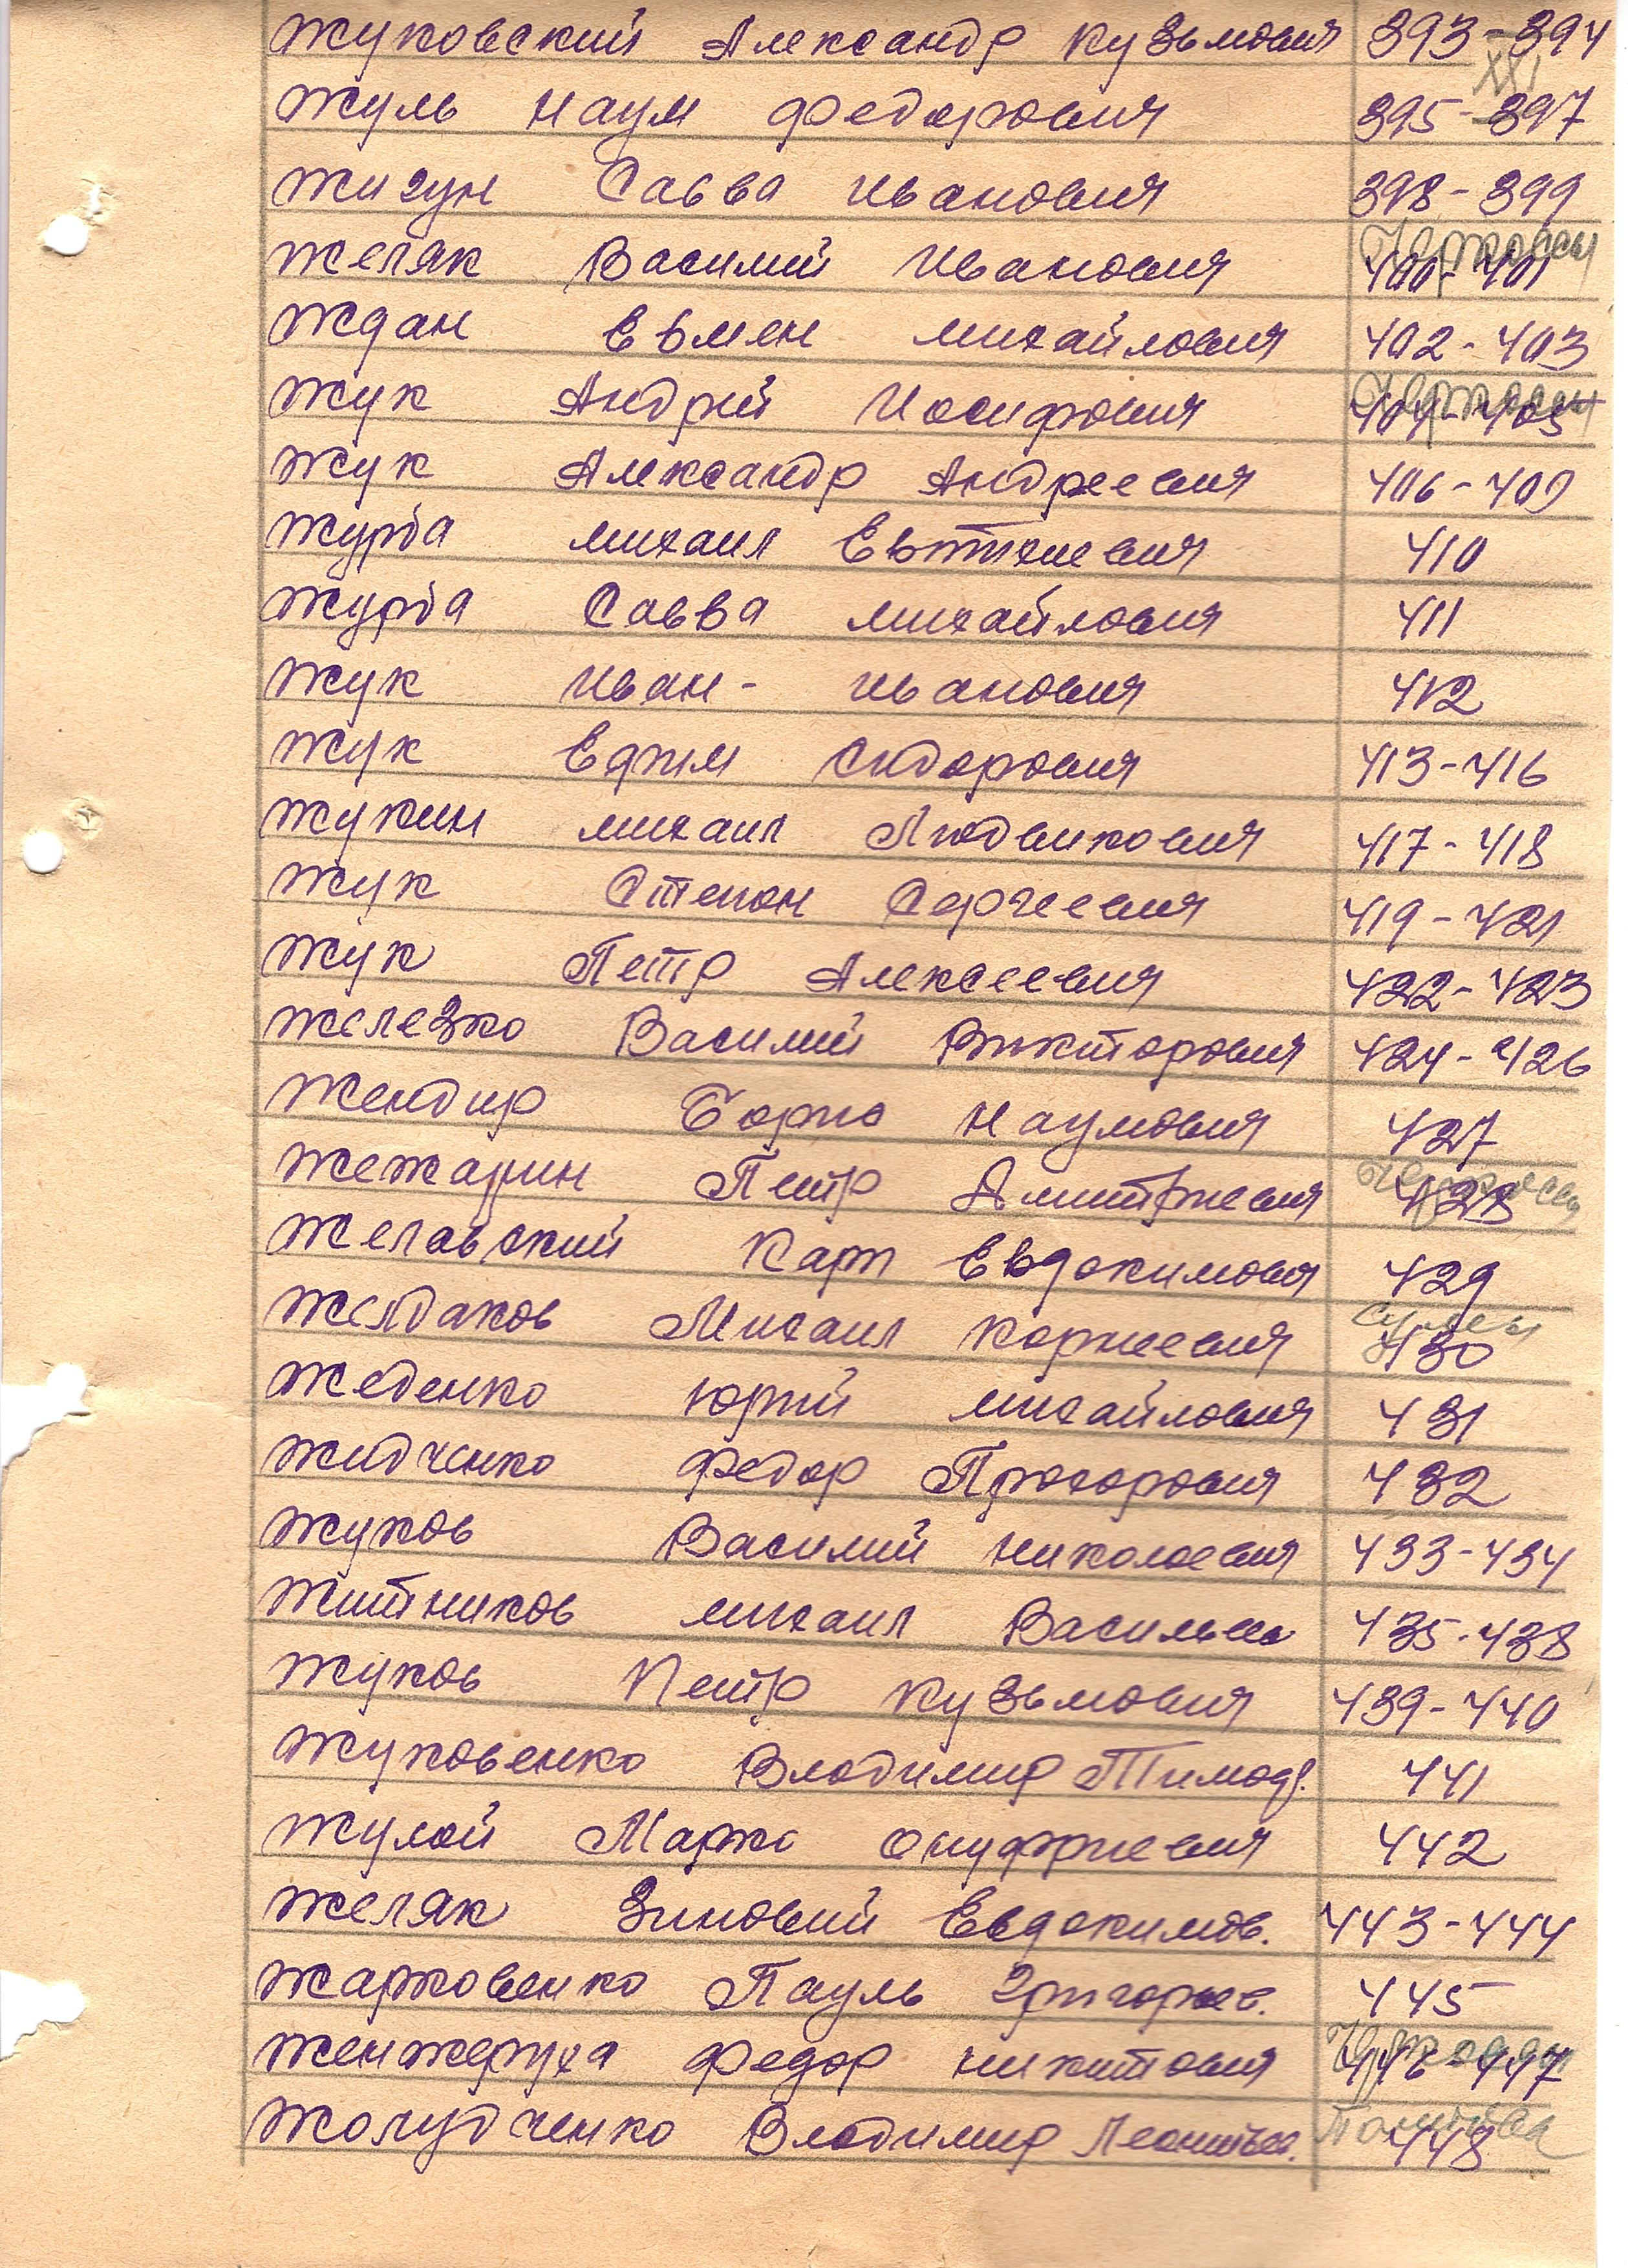 Жуковский Александр Кузьмович 393-394
XXI
Жуль Наум Федорович 395-397
Жигун Савва Иванович 398-399
Черкассы
Желяк Василий Иванович 400-401
Ждан Евмен Михайлович 402-403
Черкассы
Жук Андрей Иосифович 404-405
Жук Александр Андреевич 406-409
Журба Михаил Евтихиевич 410
Журба Савва Михайлович 411
Жук Иван - Иванович 412
Жук Ефим Сидорович 413-416
Жукин Михаил Людвикович 417-418
Жук Степан Сергеевич 419-421
Жук Петр Алексеевич 422-423
Железко Василий Викторович 424-426
Жендир Борис Наумович 427
Черкассы
Жежарин Петр Дмитриевич 428
Желавский Карп Евдокимович 429
Сумы
Желдаков Михаил Корнеевич 430
Жеденко Юрий Михайлович 431
Жидченко Федор Прохорович 432
Жуков Василий Николаевич 433-434
Житников Михаил Василье 435-438
Жуков Петр Кузьмович 439-440
Жуковенко Владимир Тимоф. 441
Жулой Марко Онуфриевич 442
Желяк Зиновий Евдокимов. 443-444
Жарковенко Пауль Григорьев. 445
Женжеруха Федор Никитович 446-447
Жолудченко Владимир Леонтьев. 448